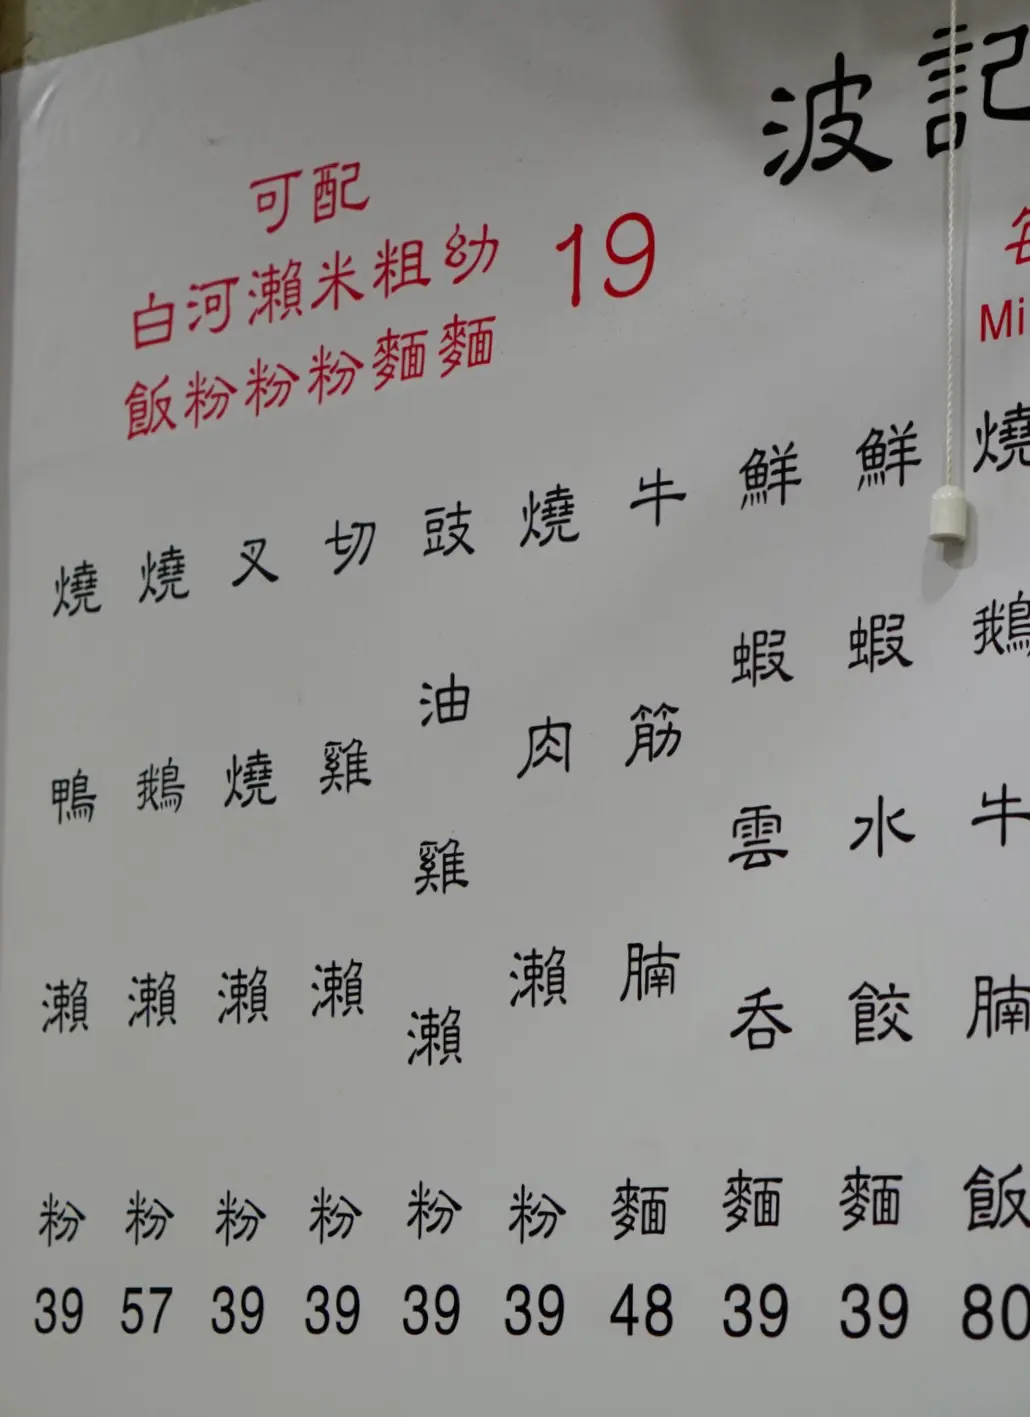 波記
Mi
燒鵝牛腩飯
80
鮮蝦水餃麵
39
鮮蝦雲吞麵
39
牛筋腩麵
48
燒肉瀨粉
39
豉油雞瀨粉
39
切雞瀨粉
39
叉燒瀨粉
39
燒鵝瀨粉
57
燒鴨瀨粉
39
可配
白河瀨米粗幼
飯粉粉粉麵麵
19